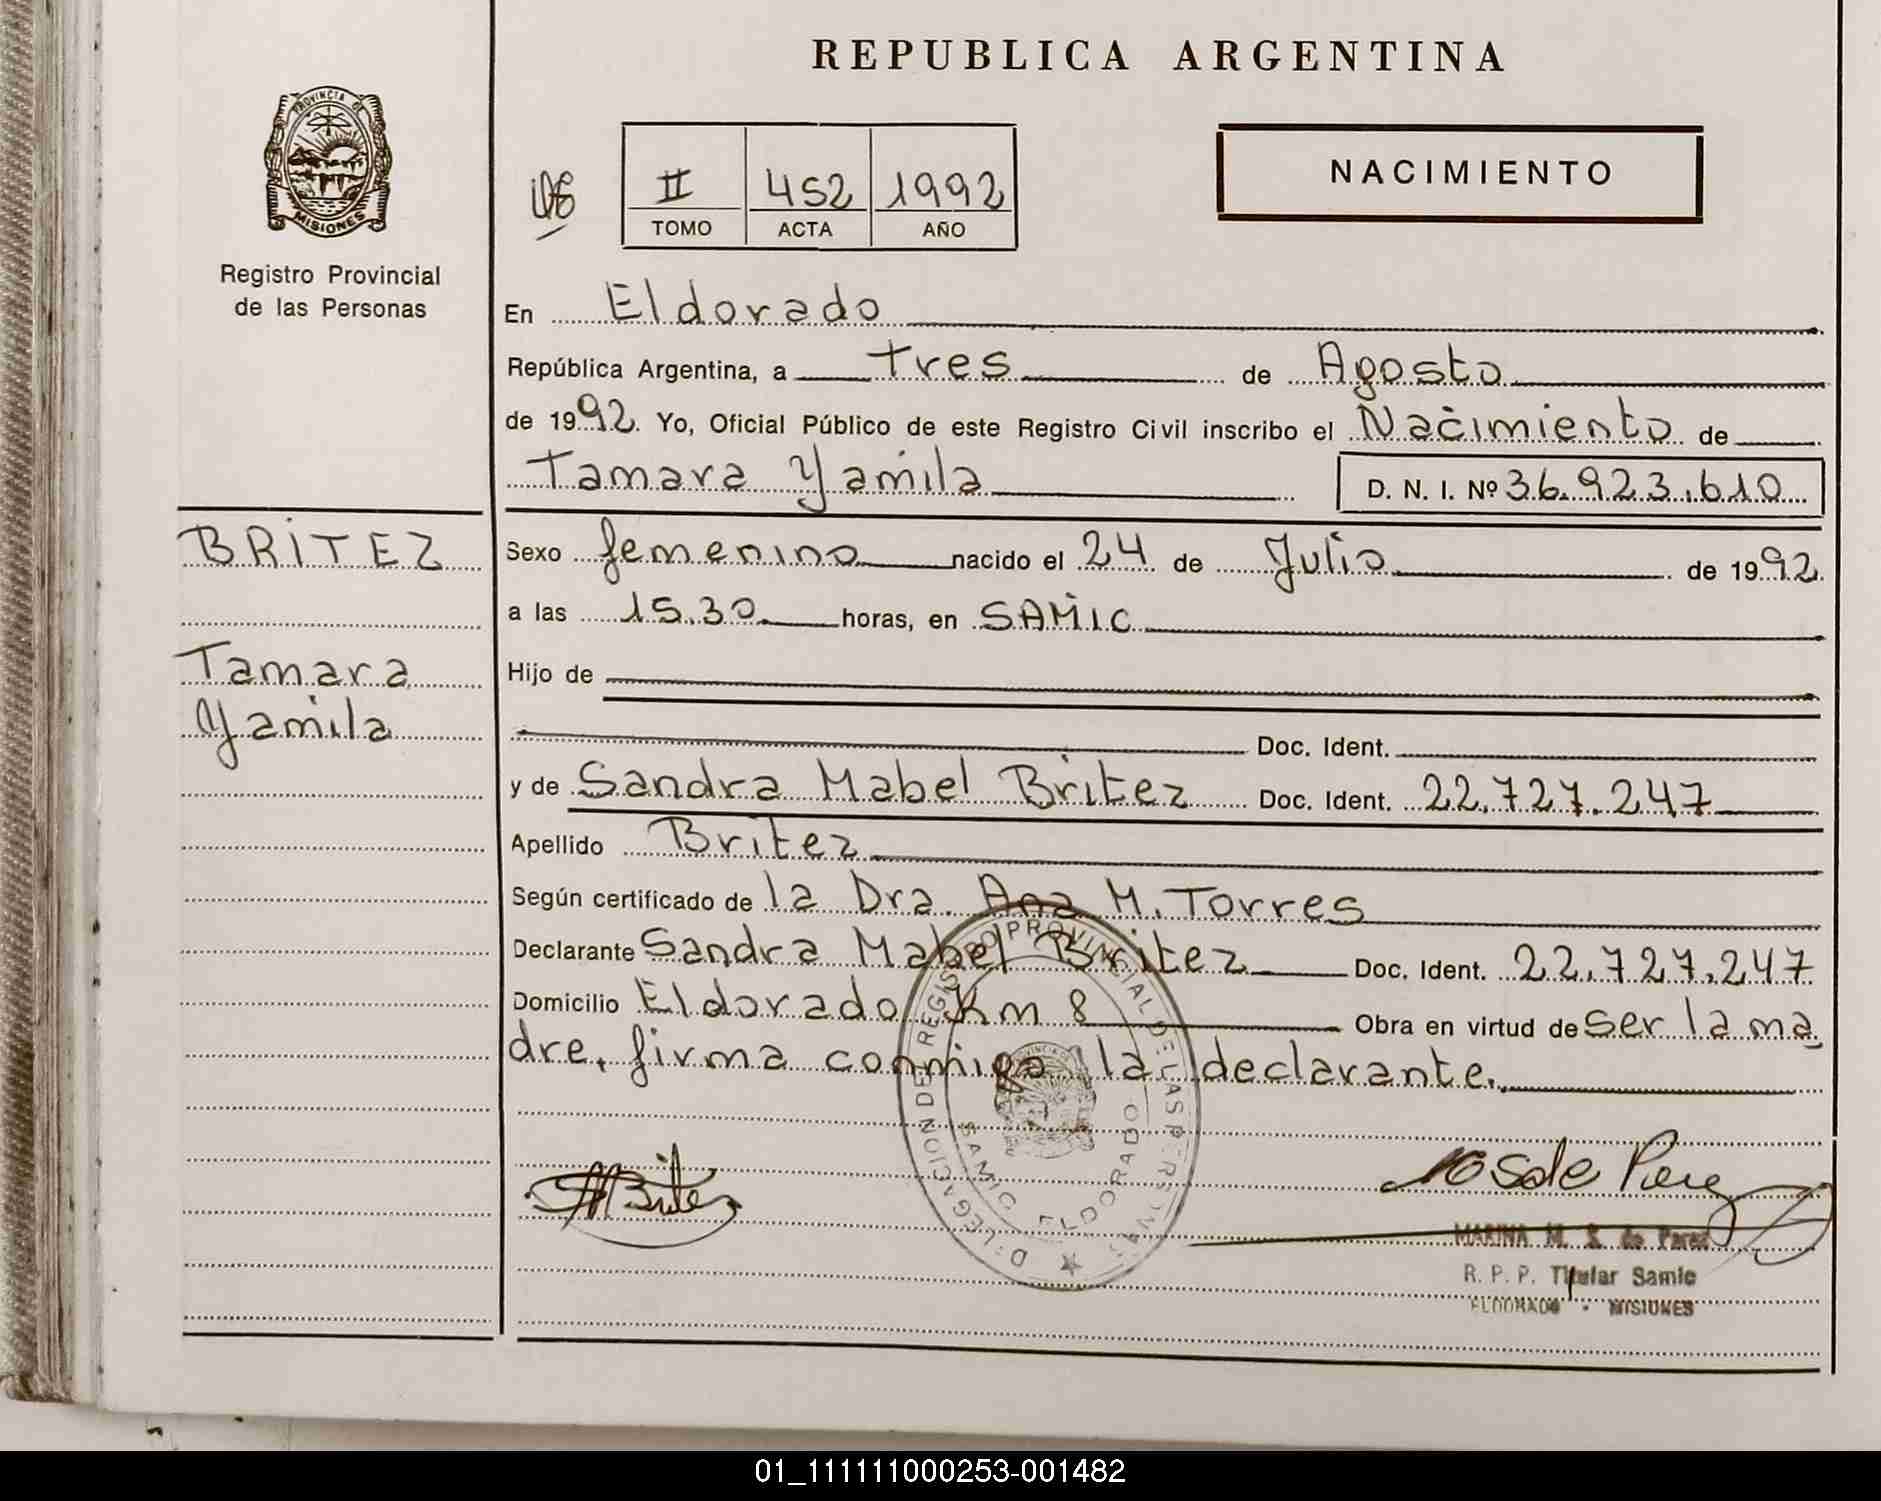 REPUBLICA ARGENTINA
PROVINCIA DE
MISIONES
Registro Provincial
de las Personas
II 452 1992
TOMO ACTA AÑO
NACIMIENTO
En Eldorado
República Argentina, a tres de Agosto
de 1992. Yo, Oficial Público de este Registro Civil inscribo el Nacimiento de
Tamara Yamila D. N. I. Nº 36.923.610
BRITEZ
Tamara
Yamila
Sexo femenino nacido el 24 de Julio de 1992.
a las 15.30 horas, en SAMIC
Hijo de
Doc. Ident.
y de Sandra Mabel Britez Doc. Ident. 22.727.247
Apellido Britez
Según certificado de la Dra. Ana M. Torres
Declarante Sandra Mabel Britez Doc. Ident. 22.727.247
Domicilio Eldorado Km 8 Obra en virtud de ser la ma
dre, firma conmigo la declarante.
DELEGACION DE REGISTRO PROVINCIAL DE LAS PERSONAS
SAMIC ELDORADO
Britez
MARINA M. S. de Perez
R. P. P. Titular Samic
ELDORADO - MISIONES
01_111111000253-001482